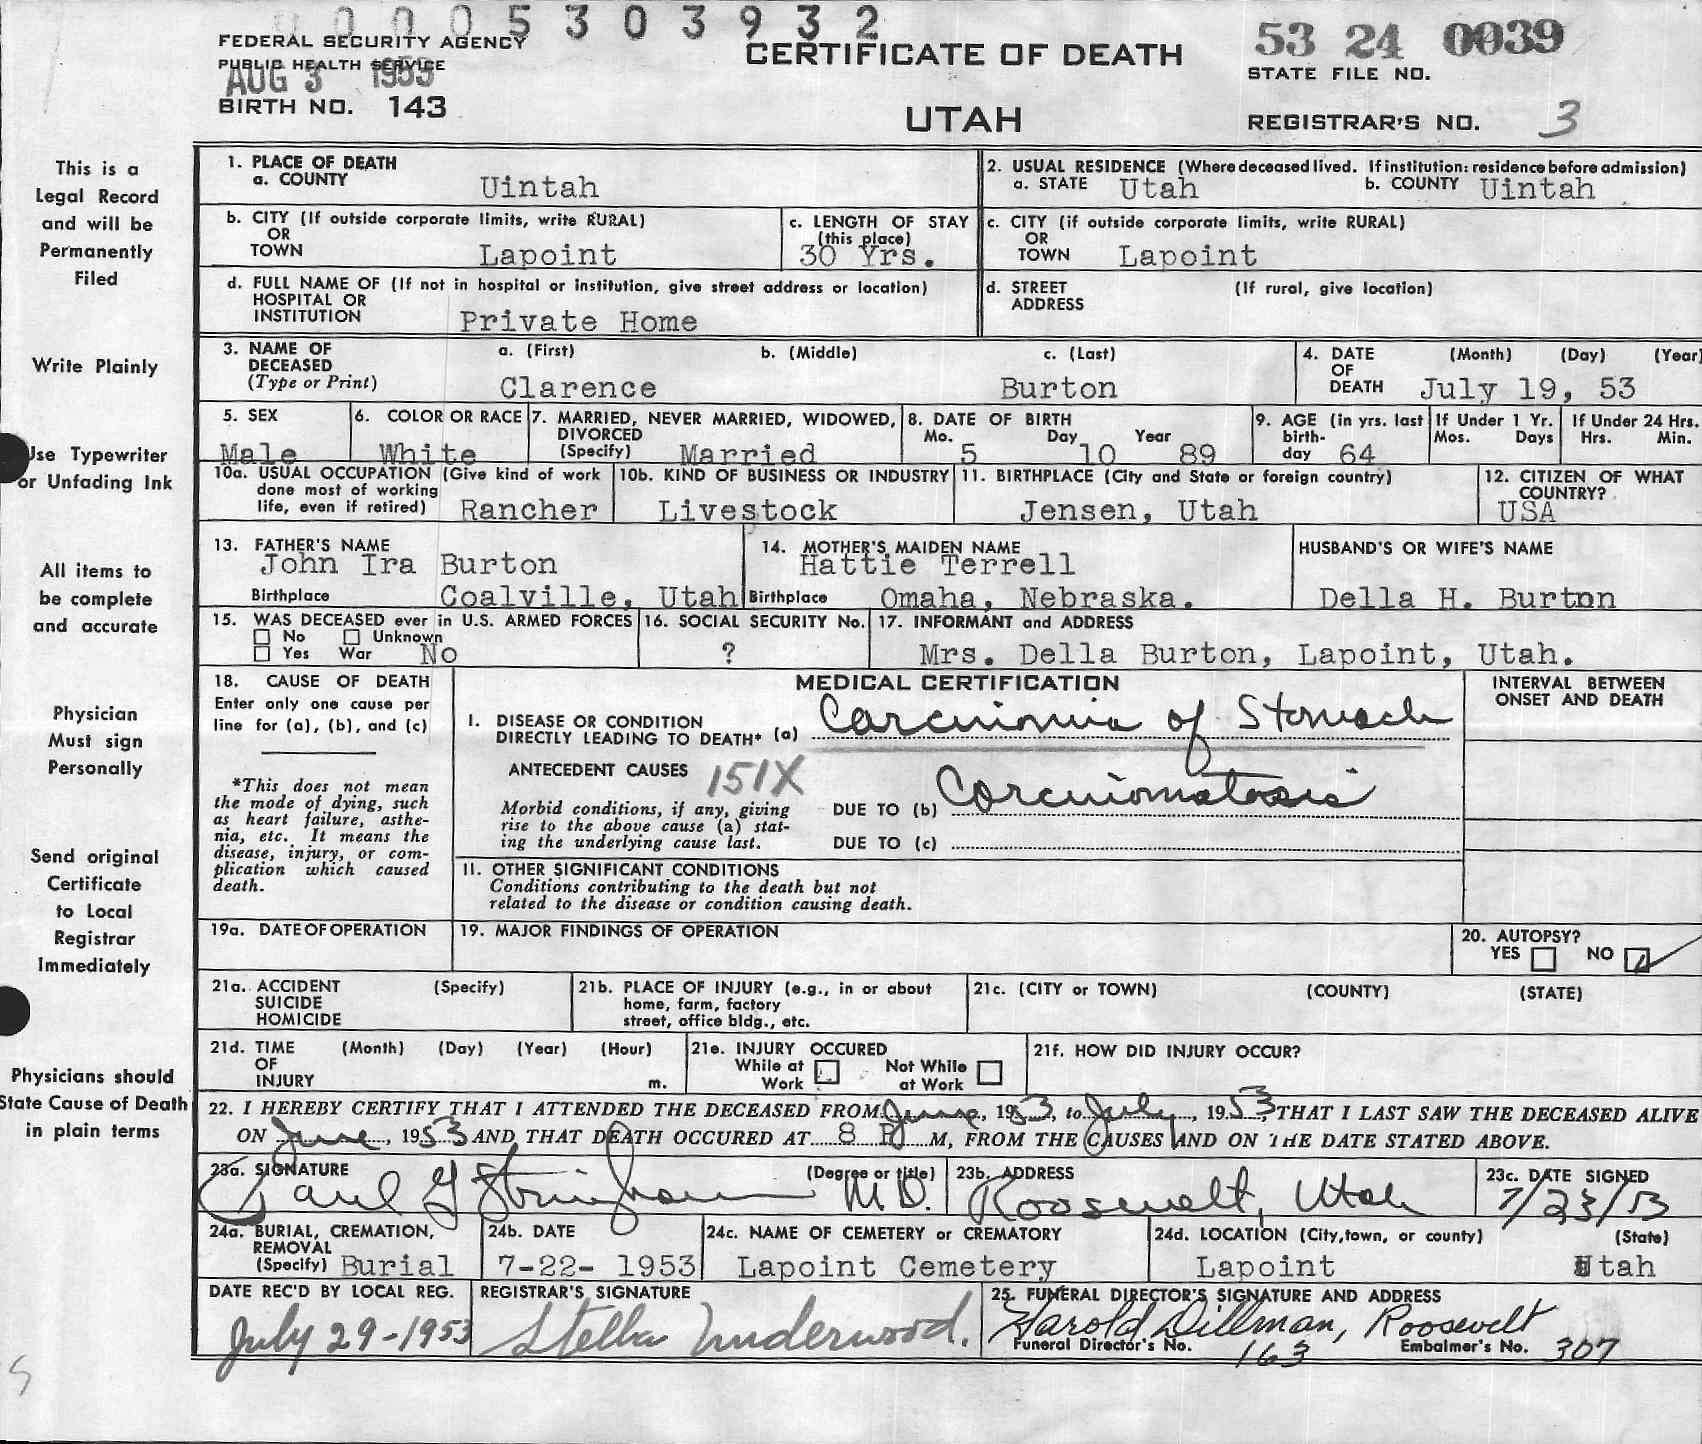 0005303932
FEDERAL SECURITY AGENCY
PUBLIC HEALTH SERVICE
AUG 3 1953
BIRTH NO. 143
CERTIFICATE OF DEATH
UTAH
53 24 0039
STATE FILE NO.
REGISTRAR'S NO. 3
This is a
Legal Record
and will be
Permanently
Filed
Write Plainly
Use Typewriter
or Unfading Ink
All items to
be complete
and accurate
Physician
Must sign
Personally
Send original
Certificate
to Local
Registrar
Immediately
Physicians should
State Cause of Death
in plain terms
1. PLACE OF DEATH
a. COUNTY Uintah
2. USUAL RESIDENCE (Where deceased lived. If institution: residence before admission)
a. STATE Utah b. COUNTY Uintah
b. CITY (If outside corporate limits, write RURAL)
OR
TOWN Lapoint
c. LENGTH OF STAY
(this place)
30 Yrs.
c. CITY (if outside corporate limits, write RURAL)
OR
TOWN Lapoint
d. FULL NAME OF (If not in hospital or institution, give street address or location)
HOSPITAL OR
INSTITUTION Private Home
d. STREET (If rural, give location)
ADDRESS
3. NAME OF a. (First) b. (Middle) c. (Last)
DECEASED
(Type or Print) Clarence Burton
4. DATE (Month) (Day) (Year)
OF
DEATH July 19, 53
5. SEX
Male
6. COLOR OR RACE
White
7. MARRIED, NEVER MARRIED, WIDOWED,
DIVORCED
(Specify) Married
8. DATE OF BIRTH
Mo. Day Year
5 10 89
9. AGE (in yrs. last
birth-
day 64
If Under 1 Yr.
Mos. Days
If Under 24 Hrs.
Hrs. Min.
10a. USUAL OCCUPATION (Give kind of work
done most of working
life, even if retired) Rancher
10b. KIND OF BUSINESS OR INDUSTRY
Livestock
11. BIRTHPLACE (City and State or foreign country)
Jensen, Utah
12. CITIZEN OF WHAT
COUNTRY?
USA
13. FATHER'S NAME
John Ira Burton
Birthplace Coalville, Utah
14. MOTHER'S MAIDEN NAME
Hattie Terrell
Birthplace Omaha, Nebraska.
HUSBAND'S OR WIFE'S NAME
Della H. Burton
15. WAS DECEASED ever in U.S. ARMED FORCES
No Unknown
Yes War No
16. SOCIAL SECURITY No.
?
17. INFORMANT and ADDRESS
Mrs. Della Burton, Lapoint, Utah.
18. CAUSE OF DEATH
Enter only one cause per
line for (a), (b), and (c)
*This does not mean
the mode of dying, such
as heart failure, asthe-
nia, etc. It means the
disease, injury, or com-
plication which caused
death.
MEDICAL CERTIFICATION
INTERVAL BETWEEN
ONSET AND DEATH
I. DISEASE OR CONDITION
DIRECTLY LEADING TO DEATH* (a) Carcinomia of Stomach
ANTECEDENT CAUSES 151X
Morbid conditions, if any, giving
rise to the above cause (a) stat-
ing the underlying cause last.
DUE TO (b) Carcinomatosis
DUE TO (c)
II. OTHER SIGNIFICANT CONDITIONS
Conditions contributing to the death but not
related to the disease or condition causing death.
19a. DATE OF OPERATION
19. MAJOR FINDINGS OF OPERATION
20. AUTOPSY?
YES NO
21a. ACCIDENT (Specify)
SUICIDE
HOMICIDE
21b. PLACE OF INJURY (e.g., in or about
home, farm, factory
street, office bldg., etc.
21c. (CITY or TOWN) (COUNTY) (STATE)
21d. TIME (Month) (Day) (Year) (Hour)
OF
INJURY m.
21e. INJURY OCCURED
While at Not While
Work at Work
21f. HOW DID INJURY OCCUR?
22. I HEREBY CERTIFY THAT I ATTENDED THE DECEASED FROM June, 1953, to July, 1953, THAT I LAST SAW THE DECEASED ALIVE
ON June, 1953 AND THAT DEATH OCCURED AT 8 P M, FROM THE CAUSES AND ON THE DATE STATED ABOVE.
23a. SIGNATURE (Degree or title)
Paul G Stringham M.D.
23b. ADDRESS
Roosevelt, Utah
23c. DATE SIGNED
7/23/53
24a. BURIAL, CREMATION,
REMOVAL
(Specify) Burial
24b. DATE
7-22- 1953
24c. NAME OF CEMETERY or CREMATORY
Lapoint Cemetery
24d. LOCATION (City, town, or county) (State)
Lapoint Utah
DATE REC'D BY LOCAL REG.
July 29-1953
REGISTRAR'S SIGNATURE
Stella Underwood.
25. FUNERAL DIRECTOR'S SIGNATURE AND ADDRESS
Harold Dillman, Roosevelt
Funeral Director's No. 163 Embalmer's No. 307